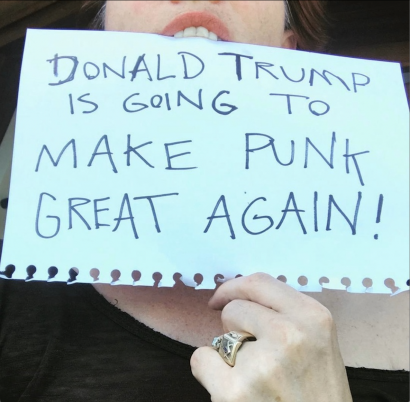 DONALD TRUMP
IS GOING TO
MAKE PUNK
GREAT AGAIN!